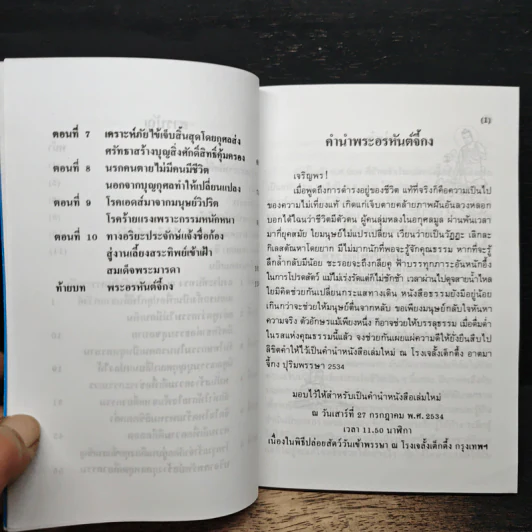 ตอนที่ 7 เคราะห์ภัยไข้เจ็บสิ้นสุดโดยกุศลส่ง
ศรัทธาสร้างบุญสิ่งศักดิ์สิทธิ์คุ้มครอง
ตอนที่ 8 นรกคนตายไม่มีคนมีชีวิต
นอกจากบุญกุศลทำให้เปลี่ยนแปลง
ตอนที่ 9 โรคเอดส์มาจากมนุษย์วิปริต
โรคร้ายแรงเพราะกรรมหนักหนา
ตอนที่ 10 ทางอริยะประจักษ์แจ้งข้อก้อง
สู่งานเลี้ยงสระทิพย์เข้าเฝ้า
สมเด็จพระมารดา
ท้ายบท พระอรหันต์จี้กง
(2)
คำนำพระอรหันต์จี้กง
เจริญพร!
เมื่อพูดถึงการดำรงอยู่ของชีวิต แท้ที่จริงก็คือความเป็นไป
ของความไม่เที่ยงแท้ เกิดแก่เจ็บตายคล้ายภาพฝันอันลวงหลอก
บอกได้ไฉนว่าชีวิตมีตัวตน ผู้คนลุ่มหลงในอกุศลมูล ผ่านพ้นเวลา
มาก็ยุคสมัย ใยมนุษย์ไม่แปรเปลี่ยน เวียนว่ายเป็นวัฏฏะ เลิกละ
กิเลสตัณหาโดยยาก มีไม่มากนักที่พอจะรู้จักคุณธรรม หากที่จะรู้
ลึกล้ำกลับมีน้อย ชะรอยจะถึงกลียุค ฟ้าบรรทุกภาระอันหนักอึ้ง
ในการโปรดสัตว์ แม้ไม่เร่งรัดแต่ก็ไม่ชักช้า เวลาผ่านไปดุจสายน้ำไหล
ใยมิคิดช่วยกันเปลี่ยนกระแสทางเดิน หนังสือธรรมยังมีอยู่น้อย
เกินกว่าจะช่วยให้มนุษย์ตื่นจากหลับ ขอเพียงมนุษย์กลับใจค้นหา
ความจริง ตัวอักษรแม้เพียงหนึ่ง ก็อาจช่วยให้บรรลุธรรม เมื่อดื่มด่ำ
ในรสแห่งคุณธรรมนี้แล้ว จงช่วยกันเผยแผ่ความดีให้ยั่งยืนสืบไป
ลิขิตคำให้ไว้เป็นคำนำหนังสือเล่มใหม่ ณ โรงเจลั้งเต็กตึ้ง อาตมา
จี้กง ปุริมพรรษา 2534
มอบไว้ให้สำหรับเป็นคำนำหนังสือเล่มใหม่
ณ วันเสาร์ที่ 27 กรกฎาคม พ.ศ. 2534
เวลา 11.50 นาฬิกา
เนื่องในพิธีปล่อยสัตว์วันเข้าพรรษา ณ โรงเจลั้งเต็กตึ้ง กรุงเทพฯ